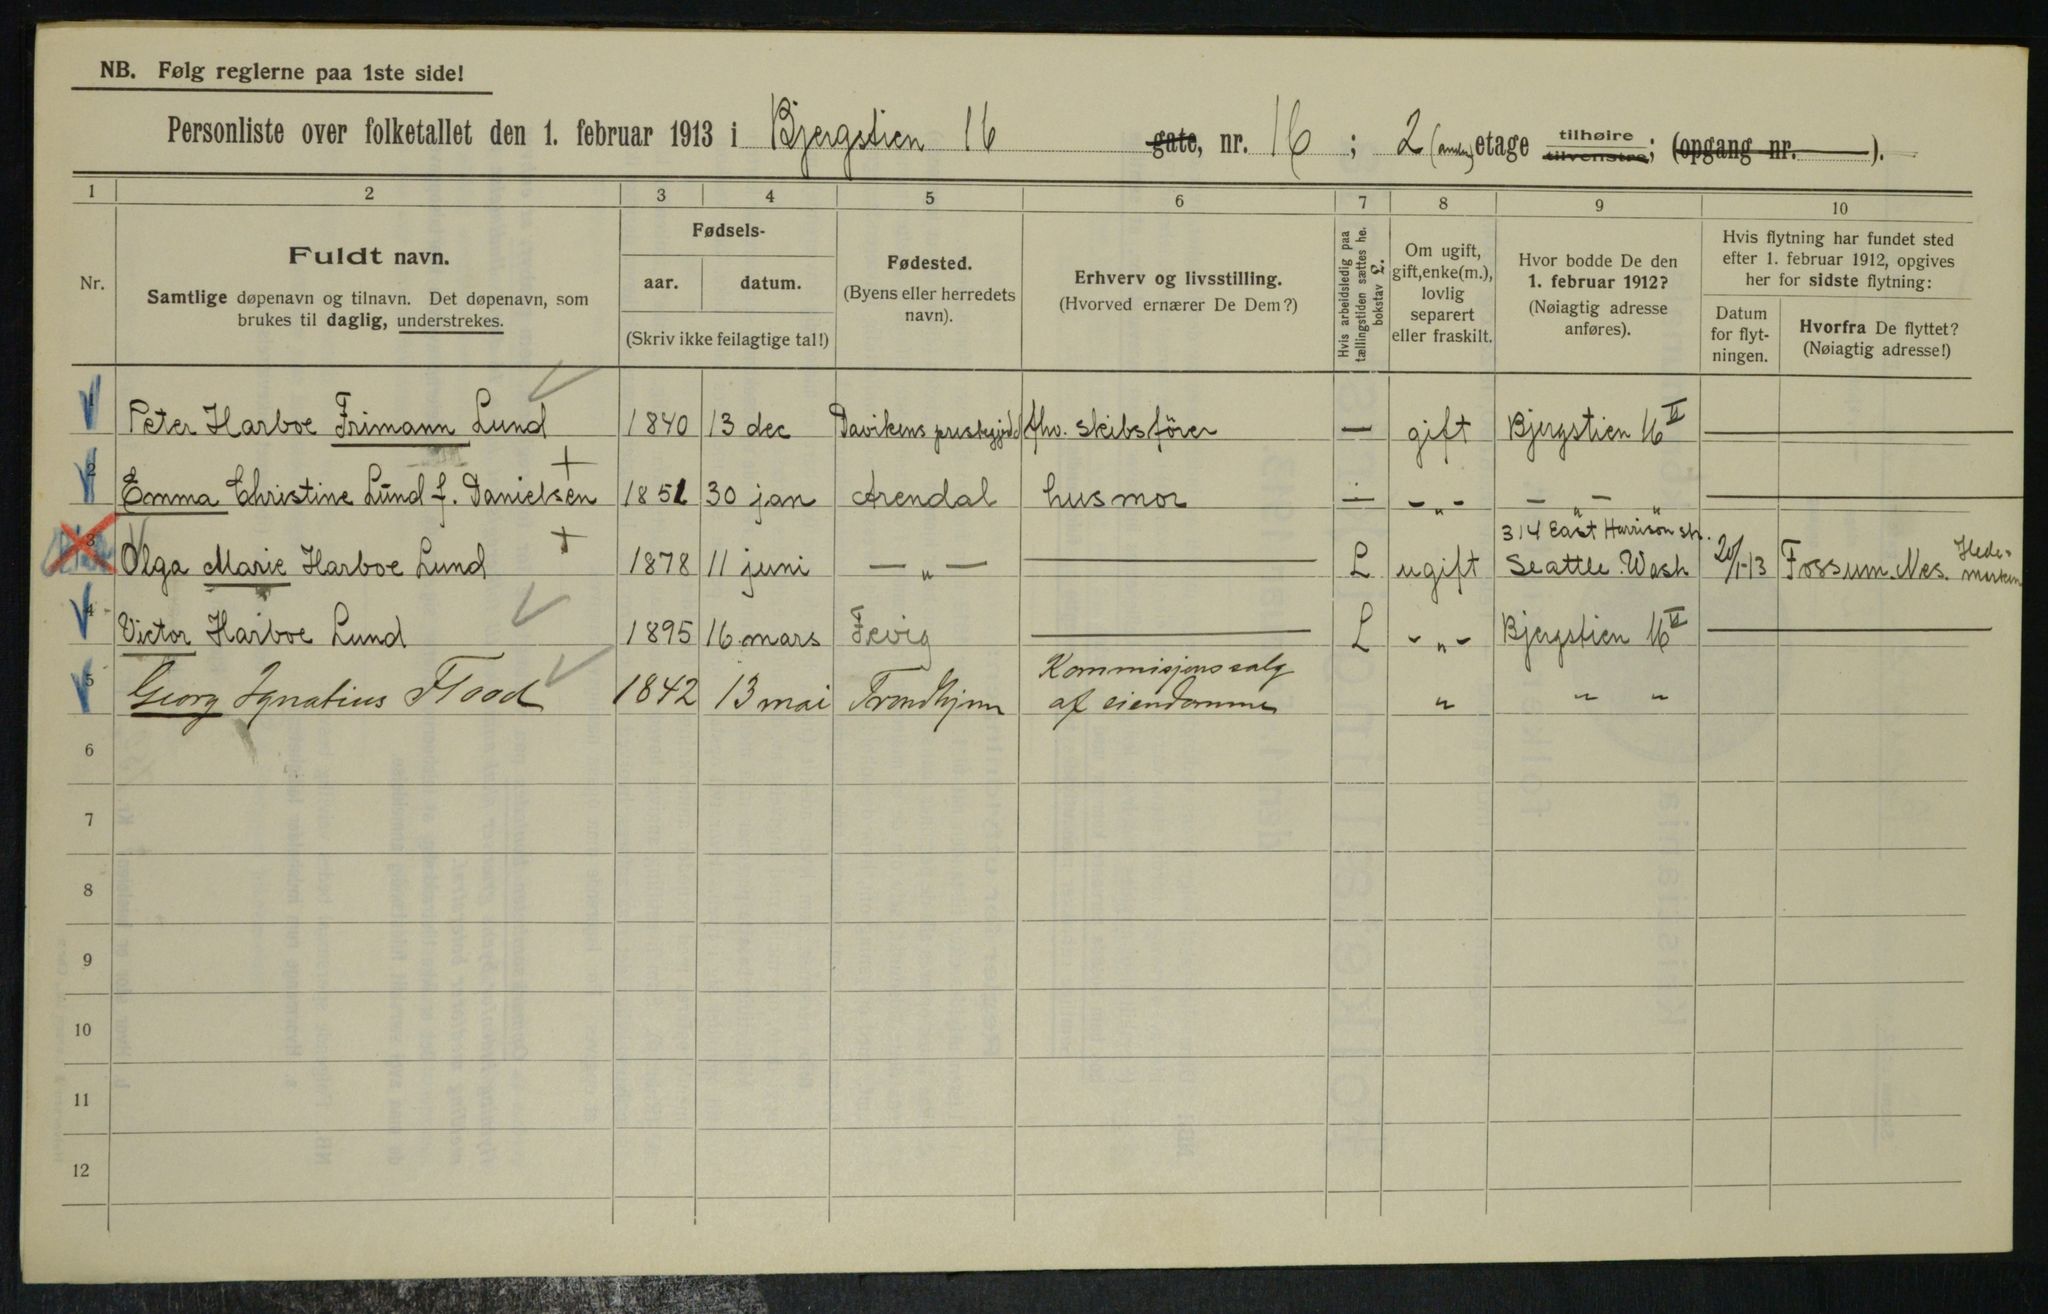 NB. Følg reglerne paa 1ste side!
Personliste over folketallet den 1. februar 1913 i Bjergstien 16 gate, nr. 16; 2 (anden) etage tilhøire tilvenstre; (opgang nr. ).
1 2 3 4 5 6 7 8 9 10
Nr.
Fuldt navn.
Samtlige døpenavn og tilnavn. Det døpenavn, som
brukes til daglig, understrekes.
Fødsels-
aar. datum.
(Skriv ikke feilagtige tal!)
Fødested.
(Byens eller herredets
navn).
Erhverv og livsstilling.
(Hvorved ernærer De Dem?)
Hvis arbeidsledig paa
tællingstiden sættes he.
bokstav L.
Om ugift,
gift, enke(m.),
lovlig
separert
eller fraskilt.
Hvor bodde De den
1. februar 1912?
(Nøiagtig adresse
anføres).
Hvis flytning har fundet sted
efter 1. februar 1912, opgives
her for sidste flytning:
Datum
for flyt-
ningen.
Hvorfra De flyttet?
(Nøiagtig adresse!)
1 Peter Harboe Frimann Lund 1840 13 dec Davikens fhv. skibsfører — gift Bjergstien 16 II
2 Emma Christine Lund f. Danielsen 1851 30 jan Arendal husmor — - „ - — „ — „
3 Olga Marie Harboe Lund 1878 11 juni — „ — L ugift 314 East Harrison str.
Seattle. Wash 20/1-13 Fossum. Nes. Hede-
marken
4 Victor Harboe Lund 1895 16 mars Fevig L - „ - Bjergstien 16 II
5 Georg Ignatius Flood 1842 13 mai Trondhjem Kommisjonssalg
af eiendomme „ „ „
6
7
8
9
10
11
12